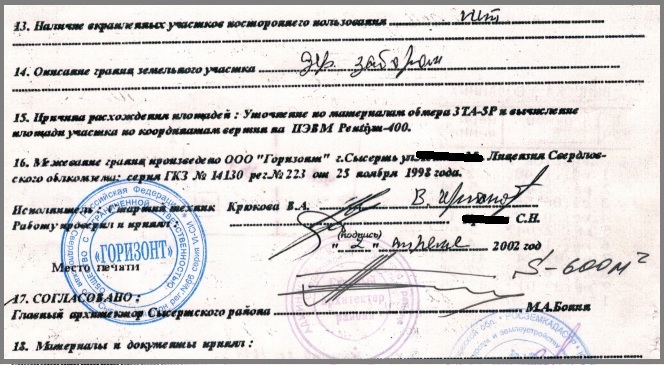 13. Наличие вкрапленных участков постороннего пользования нет
14. Описание границ земельного участка дер. забором
15. Причина расхождения площадей : Уточнение по материалам обмера 3ТА-5Р и вычисление
площади участка по координатам вершин на ПЭВМ Pentiym-400.
16. Межевание границ произведено ООО "Горизонт" г.Сысерть ул. Лицензия Свердлов-
ского облкомзема: серия ГКЗ № 14130 рег.№ 223 от 25 ноября 1998 года.
Исполнитель : Старший техник Крюкова В.А.
Работу проверил и принял : С.Н.
(подпись)
" 2 " апреля 2002 год
«ГОРИЗОНТ»
Место печати
S-600м²
17. СОГЛАСОВАНО :
Главный архитектор Сысертского района М.А.Бокия
18. Материалы и документы принял :